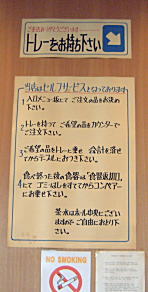 ご来店ありがとうございます
トレーをお持ち下さい
当店はセルフサービスとなっております
1 入口メニュー板にてご注文の品をお決め
下さい。
2 トレーを持ってご希望の品をカウンターで
ご注文下さい。
3 ご希望の品をトレーに乗せ 会計を済ませ
てからテーブルにおつき下さい。
食べ終った後の食器は「食器返却口」
4 にてゴミはし等をすててからコンベアー
にお乗せ下さい。
茶・水はホール中央にござい
ますのでご自由にお とり
下さい。
NO SMOKING